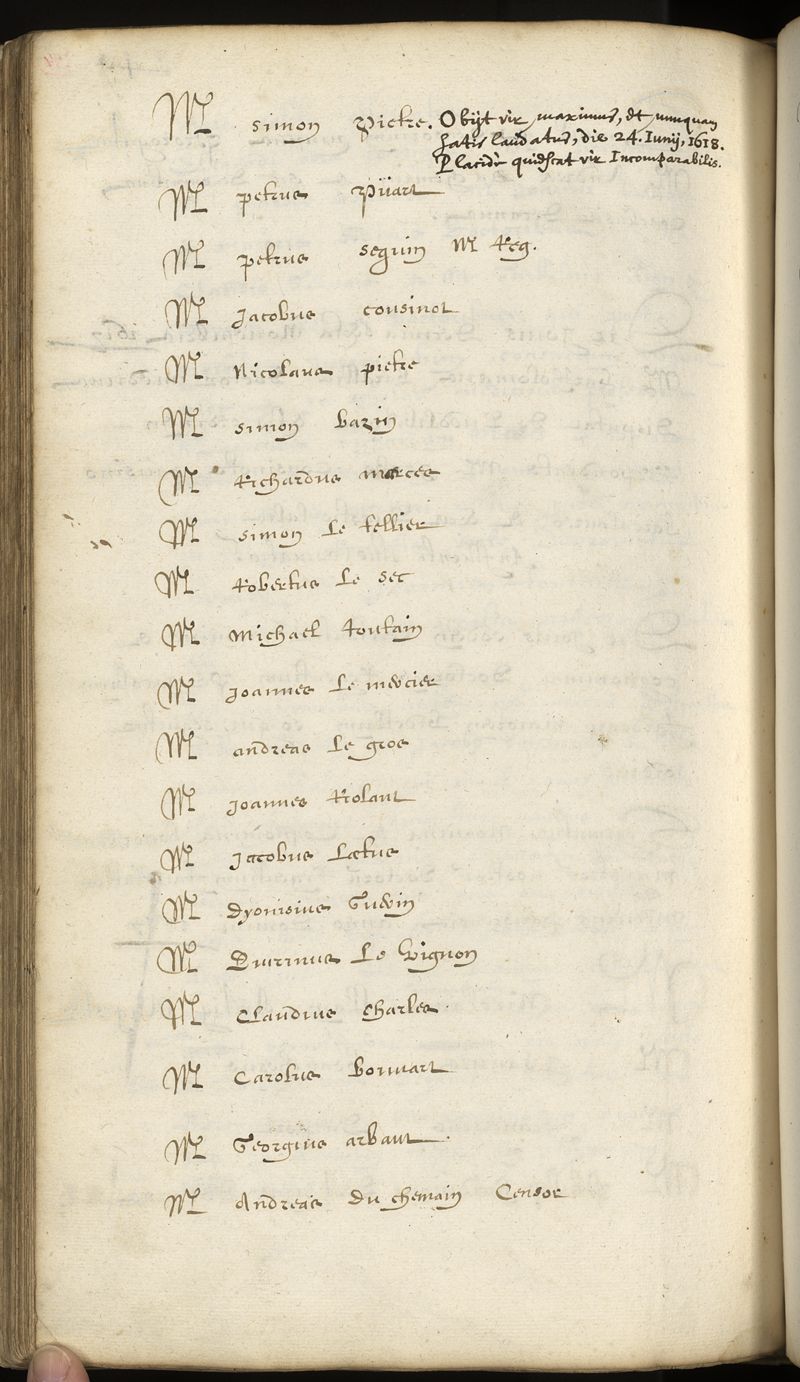 M Simon Pietre. Obijt vir maximus, et nunquam
satis laudatus, die 24. Iunij, 1618.
Placidè quiescat vir Incomparabilis.
M petrus Pijart
M petrus Seguin M Reg.
M Jacobus cousinot
M Nicolaus pietre
M Simon bazin
M Richardus
M Simon Le tellier
M Robertus Le Sec
M Michael toutain
M Joannes Le mercier
M andreas Le gros
M Joannes Riolant
M Jacobus Lætus
M Dyonisius Guerin
M Quirinus Le Vignon
M Claudius Charles
M Carolus bouuart
M Georgius arbaut
M Andreas Du chemain Censor